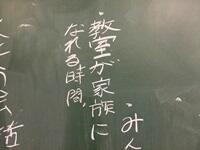 ・みん
・教室が家族に
なれる時間